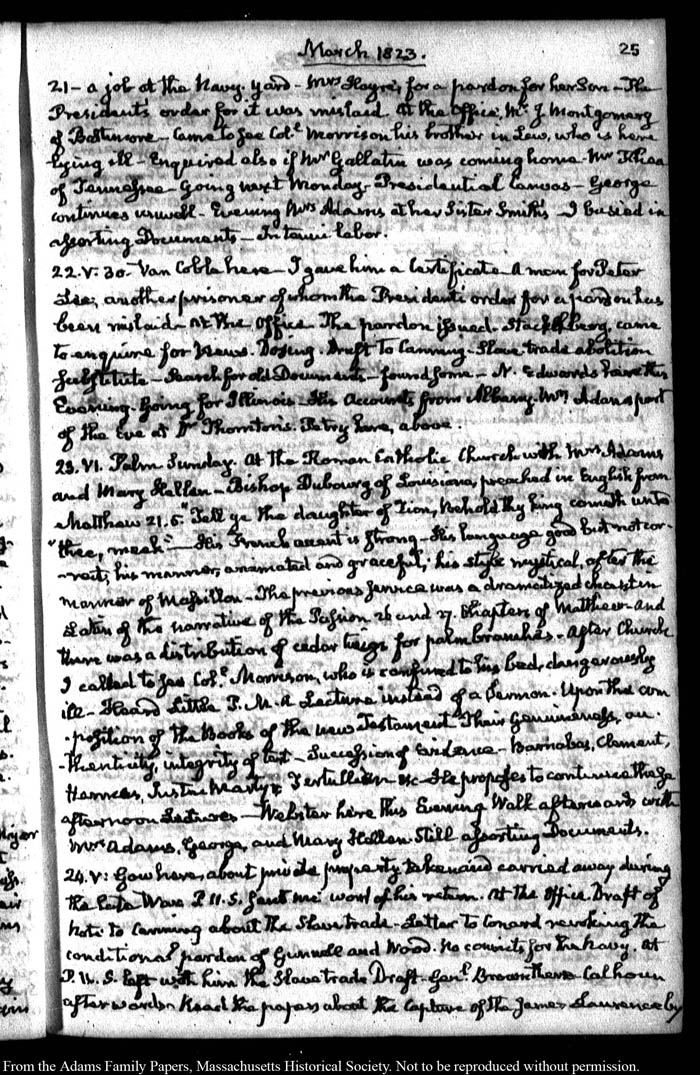 March 1823. 25
21 – a job at the Navy-Yard – Mrs Hayre, for a pardon for her Son – The
President's order for it was mislaid at the Office. Mr J Montgomery
of Baltimore – Came to see Coll. Morrison his brother in Law, who is here
lying ill – Enquired also if Mr Gallatin was coming home – Mr Rhea
of Tennessee – Going next Monday – Presidential Canvas – George
continues unwell – Evening Mrs Adams at her Sister Smith's – I busied in
assorting Documents – labor.
22. V: 30. Van Cobb here – I gave him a Certificate. A man for Peter
Lee, another prisoner of whom the President's order for a pardon has
been mislaid – At the Office. The pardon issued. Stackelberg, came
to enquire for News. Dosing. Draft to Canning – Slave trade abolition
Substitute – Search for old Documents – found some – N. Edwards here this
Evening. Going for Illinois – His Accounts from Albany. Mrs Adams part
of the Eve at Dr Thornton's. Petry here, above.
23. VI. Palm Sunday. At the Roman Catholic Church with Mrs Adams
and Mary Hellen – Bishop Dubourg of Louisiana, preached in English from
Matthew 21.5. "Tell ye the daughter of Zion, behold thy king cometh unto
"thee, meek" – His French accent is strong – His language good but not cor-
-rect, his manner, animated and graceful; his style mystical, after the
manner of Massillon – The previous service was a dramatized in
Latin of the narrative of the Passion 26 and 27. Chapters of Matthew – And
there was a distribution of cedar twigs for palm branches – After Church
I called to see Coll. Morrison, who is confined to his bed, dangerously
ill – Heard Little P.M. A Lecture instead of a Sermon. Upon the com
-position of the Books of the new Testament. Their genuineness, au-
-thenticity, integrity of text – Succession of Evidence – Barnabas, Clement,
Hermas, Justin Martyr, Tertullian &c – He proposes to continue these
afternoon Lectures – Webster here this Evening. Walk afterwards with
Mrs Adams, George, and Mary Hellen. Still assorting Documents.
24. V: here, about private property taken and carried away during
the late War. P.U.S. sent me word of his return. At the Office. Draft of
Note to Canning about the Slave trade – Letter to Conard revoking the
conditional pardon of and Wood. No convicts for the Navy. At
P.U.S. left with him the Slave trade Draft – Genl. Brown there – Calhoun
afterwards – Read the papers about the capture of the James Lawrence by
From the Adams Family Papers, Massachusetts Historical Society. Not to be reproduced without permission.